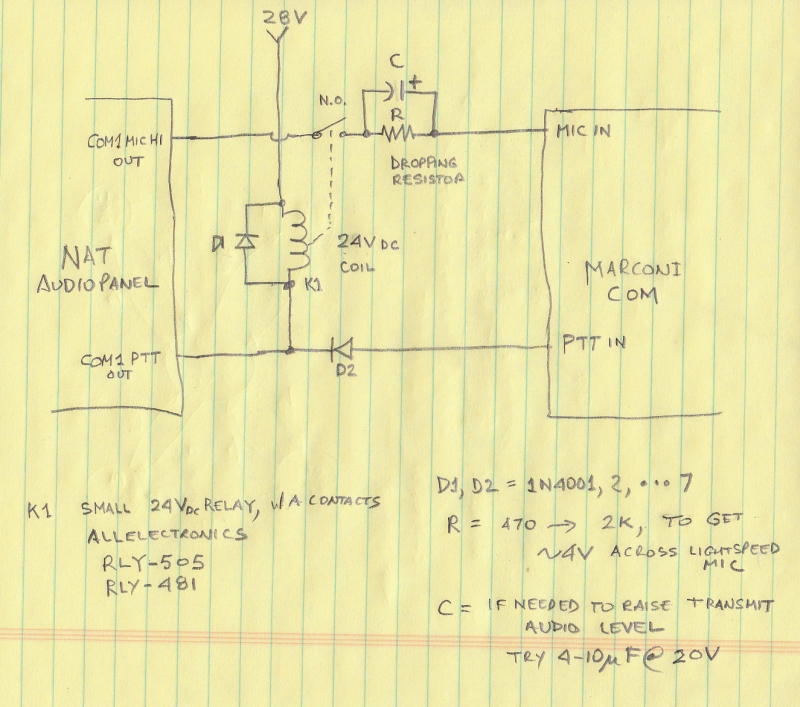 28V
C
+
N.O.
R
COM1 MIC HI
OUT
MIC IN
DROPPING
RESISTOR
D1
24VDC
COIL
NAT
AUDIO PANEL
K1
MARCONI
COM
COM1 PTT
OUT
PTT IN
D2
K1 SMALL 24VDC RELAY, W/A CONTACTS
ALLELECTRONICS
RLY-505
RLY-481
D1, D2 = 1N4001, 2, ••• 7
R = 470 → 2K, TO GET
~4V ACROSS LIGHTSPEED
MIC
C = IF NEEDED TO RAISE TRANSMIT
AUDIO LEVEL
TRY 4-10µF @ 20V